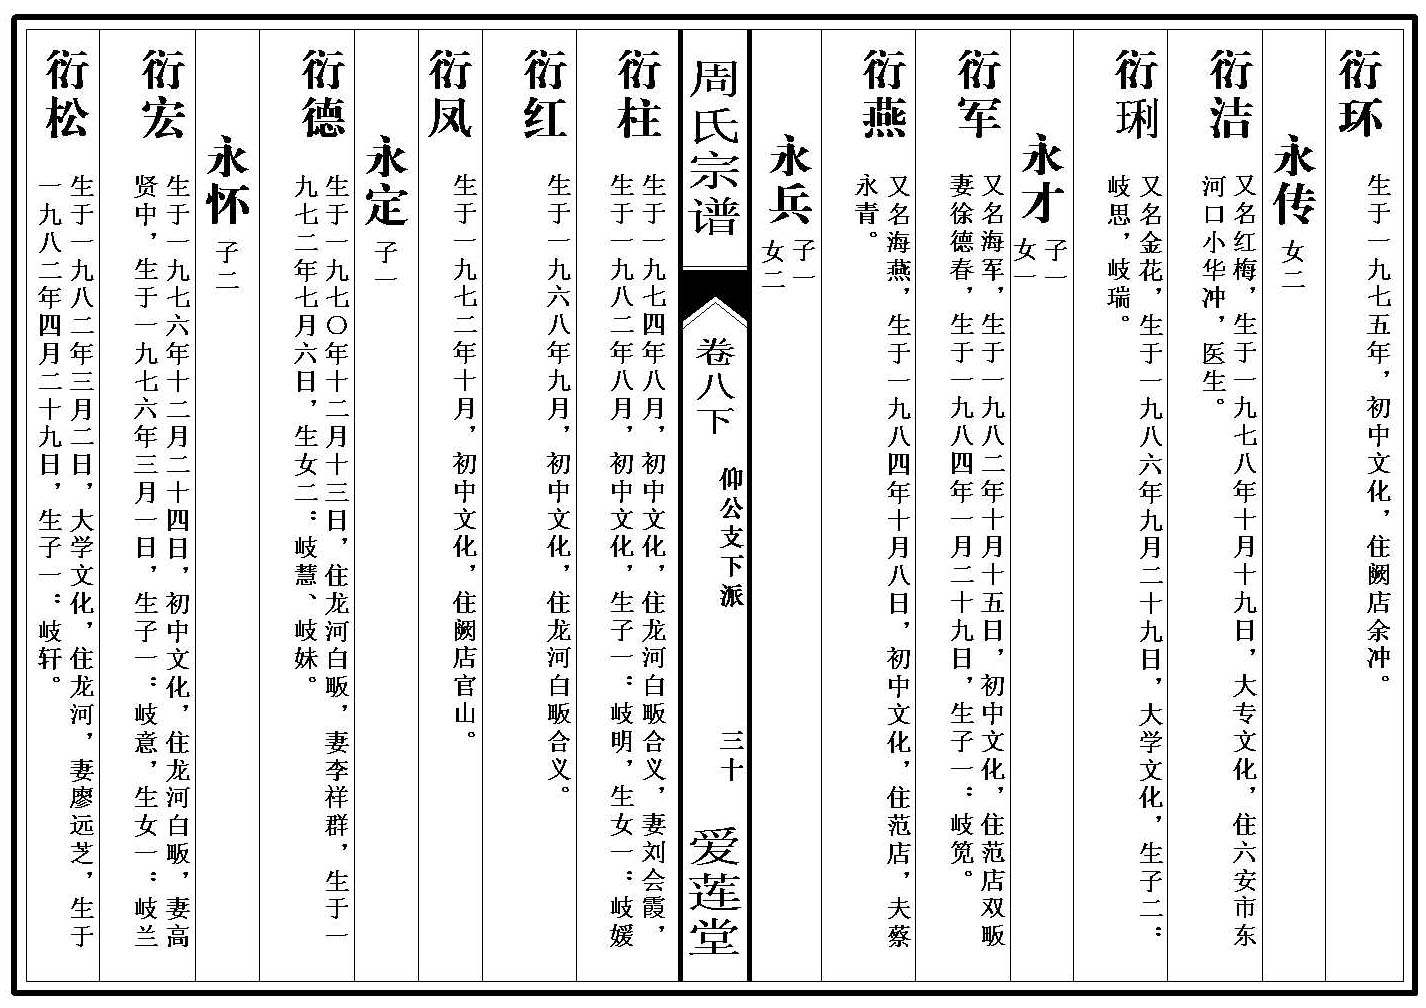 衍环
生于一九七五年，初中文化，住阙店余冲。
永传
女二
衍洁
又名红梅，生于一九七八年十月十九日，大专文化，住六安市东
河口小华冲，医生。
衍琍
又名金花，生于一九八六年九月二十九日，大学文化，生子二：
岐思，岐瑞。
永才
子一
女一
衍军
又名海军，生于一九八二年十月十五日，初中文化，住范店双畈
妻徐德春，生于一九八四年一月二十九日，生子一：岐筦。
衍燕
又名海燕，生于一九八四年十月八日，初中文化，住范店，夫蔡
永青。
永兵
子一
女二
周氏宗谱
卷八下
仰公支下派
三十
爱莲堂
衍柱
生于一九七四年八月，初中文化，住龙河白畈合义，妻刘会霞，
生于一九八二年八月，初中文化，生子一：岐明，生女一：岐媛
衍红
生于一九六八年九月，初中文化，住龙河白畈合义。
衍凤
生于一九七二年十月，初中文化，住阙店官山。
永定
子一
衍德
生于一九七〇年十二月十三日，住龙河白畈，妻李祥群，生于一
九七二年七月六日，生女二：岐慧、岐妹。
永怀
子二
衍宏
生于一九七六年十二月二十四日，初中文化，住龙河白畈，妻高
贤中，生于一九七六年三月一日，生子一：岐意，生女一：岐兰
衍松
生于一九八二年三月二日，大学文化，住龙河，妻廖远芝，生于
一九八二年四月二十九日，生子一：岐轩。